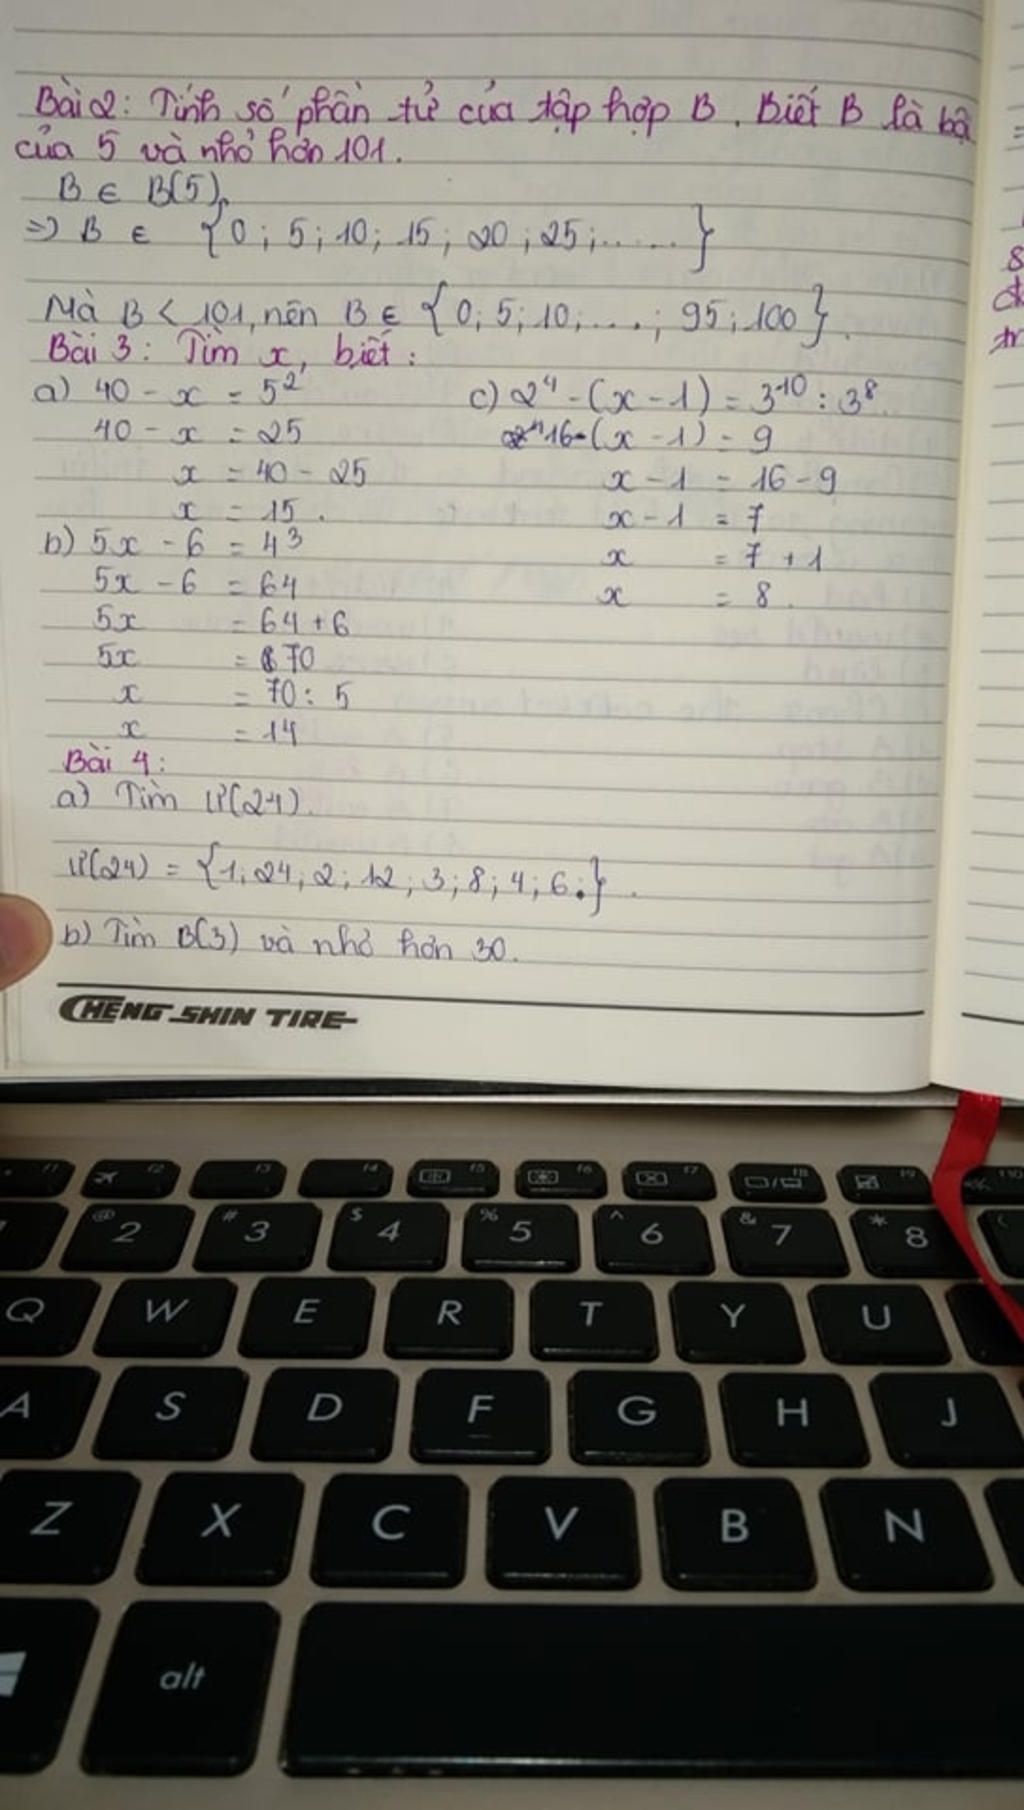 Bài 2: Tính số phần tử của tập hợp B. Biết B là bộ
của 5 và nhỏ hơn 101.
B ∈ B(5)
=> B ∈ {0; 5; 10; 15; 20; 25; ......}
Mà B < 101, nên B ∈ {0; 5; 10; ....; 95; 100}.
Bài 3: Tìm x, biết:
a) 40 - x = 5²
40 - x = 25
x = 40 - 25
x = 15.
b) 5x - 6 = 4³
5x - 6 = 64
5x = 64 + 6
5x = 70
x = 70 : 5
x = 14
c) 2⁴ - (x - 1) = 3¹⁰ : 3⁸
16 - (x - 1) = 9
x - 1 = 16 - 9
x - 1 = 7
x = 7 + 1
x = 8.
Bài 4:
a) Tìm Ư(24).
Ư(24) = {1; 24; 2; 12; 3; 8; 4; 6.}.
b) Tìm B(3) và nhỏ hơn 30.
CHENG SHIN TIRE
f1 f2 f3 f4 f5 f6 f7 f8 f9 f10
@ 2 # 3 $ 4 % 5 ^ 6 & 7 * 8 (
Q W E R T Y U
A S D F G H J
Z X C V B N
alt